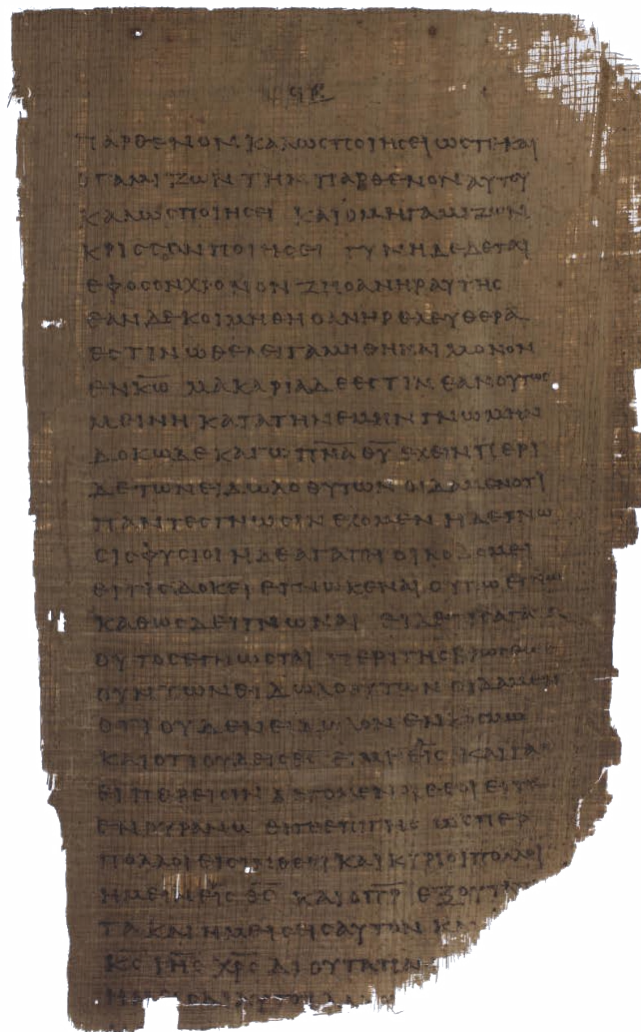 ΠΑΡΘΕΝΟΝ ΚΑΛΩϹ ΠΟΙΗϹΕΙ ΩϹΤΕ ΚΑΙ
Ο ΓΑΜΙΖΩΝ ΤΗΝ ΠΑΡΘΕΝΟΝ ΑΥΤΟΥ
ΚΑΛΩϹ ΠΟΙΗϹΕΙ ΚΑΙ Ο ΜΗ ΓΑΜΙΖΩΝ
ΚΡΙϹϹΟΝ ΠΟΙΗϹΕΙ ΓΥΝΗ ΔΕΔΕΤΑΙ
ΕΦ ΟϹΟΝ ΧΡΟΝΟΝ ΖΗ Ο ΑΝΗΡ ΑΥΤΗϹ
ΕΑΝ ΔΕ ΚΟΙΜΗΘΗ Ο ΑΝΗΡ ΕΛΕΥΘΕΡΑ
ΕϹΤΙΝ Ω ΘΕΛΕΙ ΓΑΜΗΘΗΝΑΙ ΜΟΝΟΝ
ΕΝ Κ̅Ω̅ ΜΑΚΑΡΙΑ ΔΕ ΕϹΤΙΝ ΕΑΝ ΟΥΤΩϹ
ΜΕΙΝΗ ΚΑΤΑ ΤΗΝ ΕΜΗΝ ΓΝΩΜΗΝ
ΔΟΚΩ ΔΕ ΚΑΓΩ Π̅Ν̅Α̅ Θ̅Υ̅ ΕΧΕΙΝ ΠΕΡΙ
ΔΕ ΤΩΝ ΕΙΔΩΛΟΘΥΤΩΝ ΟΙΔΑΜΕΝ ΟΤΙ
ΠΑΝΤΕϹ ΓΝΩϹΙΝ ΕΧΟΜΕΝ Η ΔΕ ΓΝΩ
ϹΙϹ ΦΥϹΙΟΙ Η ΔΕ ΑΓΑΠΗ ΟΙΚΟΔΟΜΕΙ
ΕΙ ΤΙϹ ΔΟΚΕΙ ΕΓΝΩΚΕΝΑΙ ΟΥΠΩ ΕΓΝΩ
ΚΑΘΩϹ ΔΕΙ ΓΝΩΝΑΙ ΕΙ ΔΕ ΤΙϹ ΑΓΑΠΑ
ΟΥΤΟϹ ΕΓΝΩϹΤΑΙ ΠΕΡΙ ΤΗϹ ΒΡΩϹΕΩϹ
ΟΥΝ ΤΩΝ ΕΙΔΩΛΟΘΥΤΩΝ ΟΙΔΑΜΕΝ
ΟΤΙ ΟΥΔΕΝ ΕΙΔΩΛΟΝ ΕΝ ΚΟϹΜΩ
ΚΑΙ ΟΤΙ ΟΥΔΕΙϹ Θ̅Ϲ̅ ΕΙ ΜΗ ΕΙϹ ΚΑΙ ΓΑΡ
ΕΙΠΕΡ ΕΙϹΙΝ ΛΕΓΟΜΕΝΟΙ ΘΕΟΙ ΕΙΤΕ
ΕΝ ΟΥΡΑΝΩ ΕΙΤΕ ΕΠΙ ΓΗϹ ΩϹΠΕΡ
ΠΟΛΛΟΙ ΕΙϹΙΝ ΘΕΟΙ ΚΑΙ ΚΥΡΙΟΙ ΠΟΛΛΟΙ
ΗΜΕΙΝ ΕΙϹ Θ̅Ϲ̅ ΚΑΙ Ο Π̅Ρ̅ ΕΞ ΟΥ ΤΑ
ΤΑ ΚΑΙ ΗΜΕΙϹ ΕΙϹ ΑΥΤΟΝ ΚΑΙ
Κ̅Ϲ̅ Ι̅Η̅Ϲ̅ Χ̅Ρ̅Ϲ̅ ΔΙ ΟΥ ΤΑ ΠΑΝ
ΗΜΕΙϹ ΔΙ ΑΥΤΟΥ ΑΛΛ